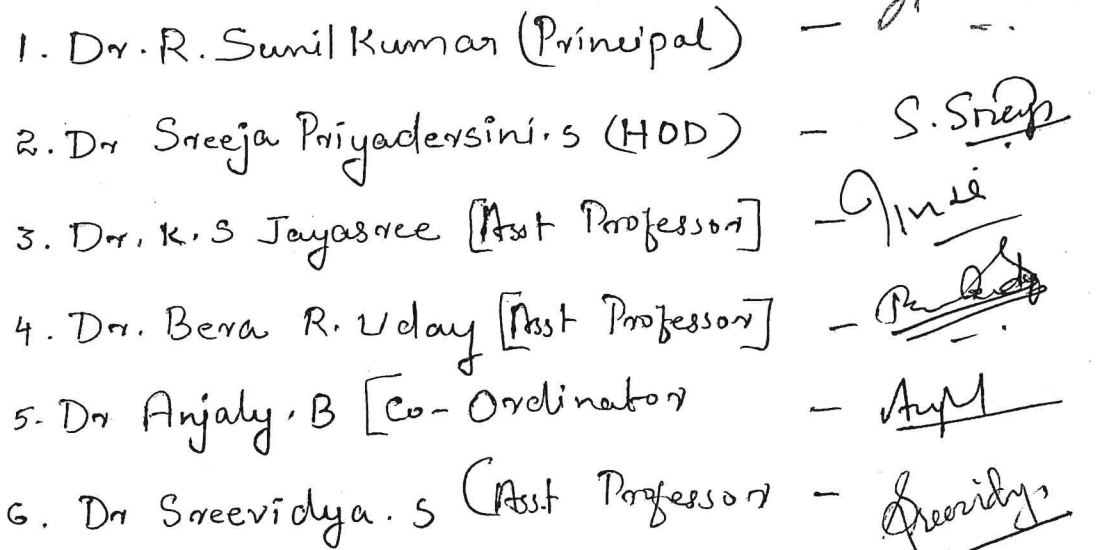 1. Dr. R. Sunil Kumar (Principal) -
2. Dr Sreeja Priyadersini. s (HOD) - S. Sreeja
3. Dr. K. S Jayasree [Asst Professor] -
4. Dr. Bera R. Uday [Asst Professor] -
5. Dr Anjaly. B [Co-Ordinator -
6. Dr Sreevidya. s (Asst Professor - Sreevidya